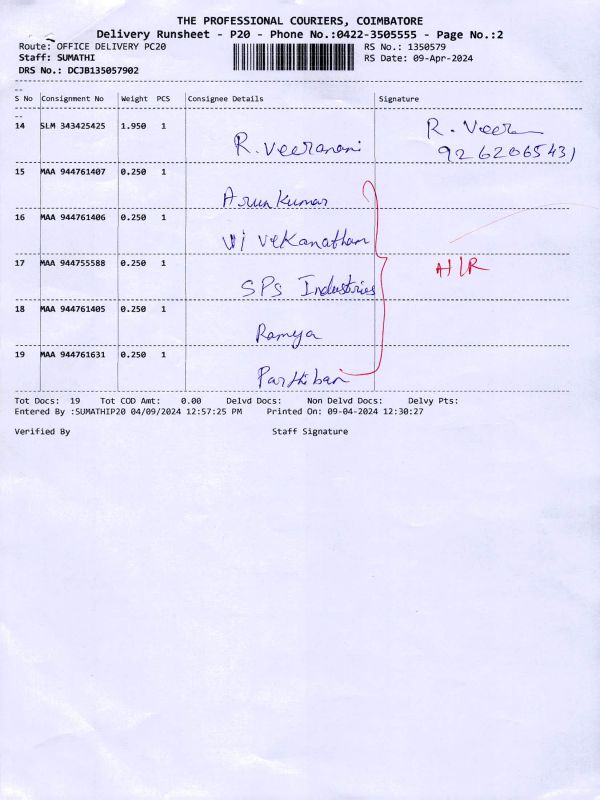 THE PROFESSIONAL COURIERS, COIMBATORE
Delivery Runsheet - P20 - Phone No.:0422-3505555 - Page No.:2
Route: OFFICE DELIVERY PC20 RS No.: 1350579
Staff: SUMATHI RS Date: 09-Apr-2024
DRS No.: DCJB135057902
S No Consignment No Weight PCS Consignee Details Signature
14 SLM 343425425 1.950 1 R. Veeramani R. Veera
9262065431
15 MAA 944761407 0.250 1 Arunkumar
16 MAA 944761406 0.250 1 Vivekanatham
17 MAA 944755588 0.250 1 SPS Industries
18 MAA 944761405 0.250 1 Ramya
19 MAA 944761631 0.250 1 Parthiban
Tot Docs: 19 Tot COD Amt: 0.00 Delvd Docs: Non Delvd Docs: Delvy Pts:
Entered By :SUMATHIP20 04/09/2024 12:57:25 PM Printed On: 09-04-2024 12:30:27
Verified By Staff Signature